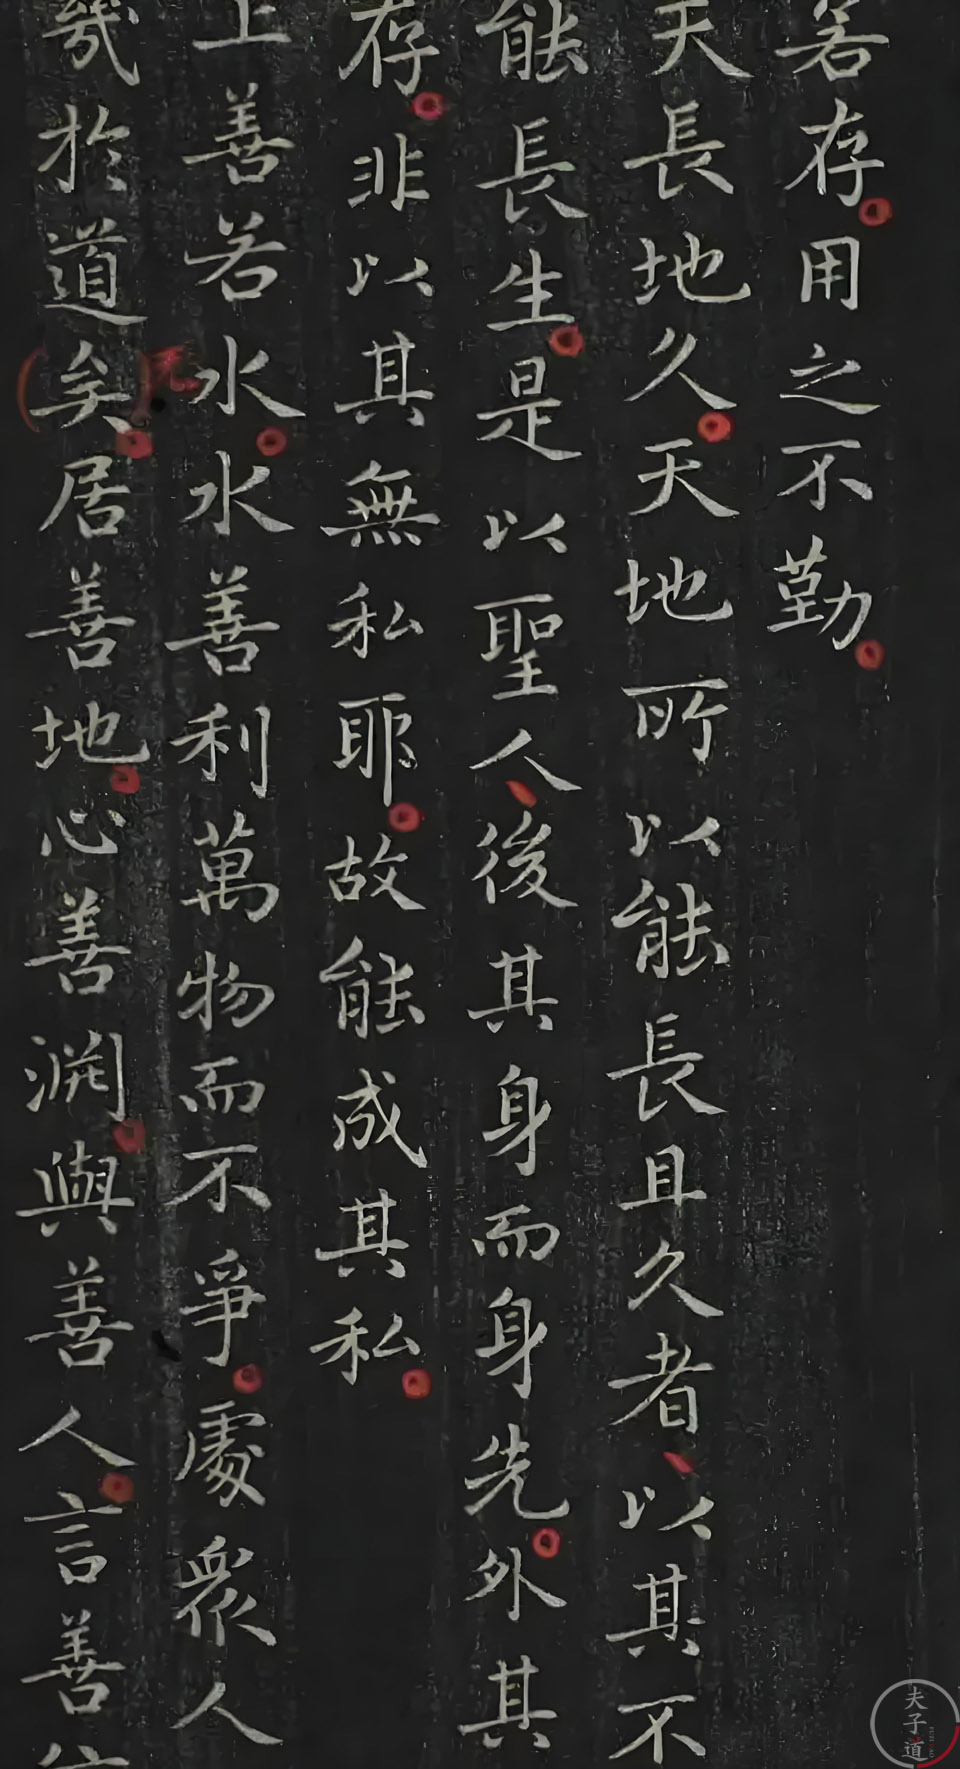 若存用之不勤
天長地久天地所以能長且久者以其不
能長生是以聖人後其身而身先外其
存非以其無私耶故能成其私
上善若水水善利萬物而不爭處眾人
幾於道矣居善地心善淵與善人言善
夫子道